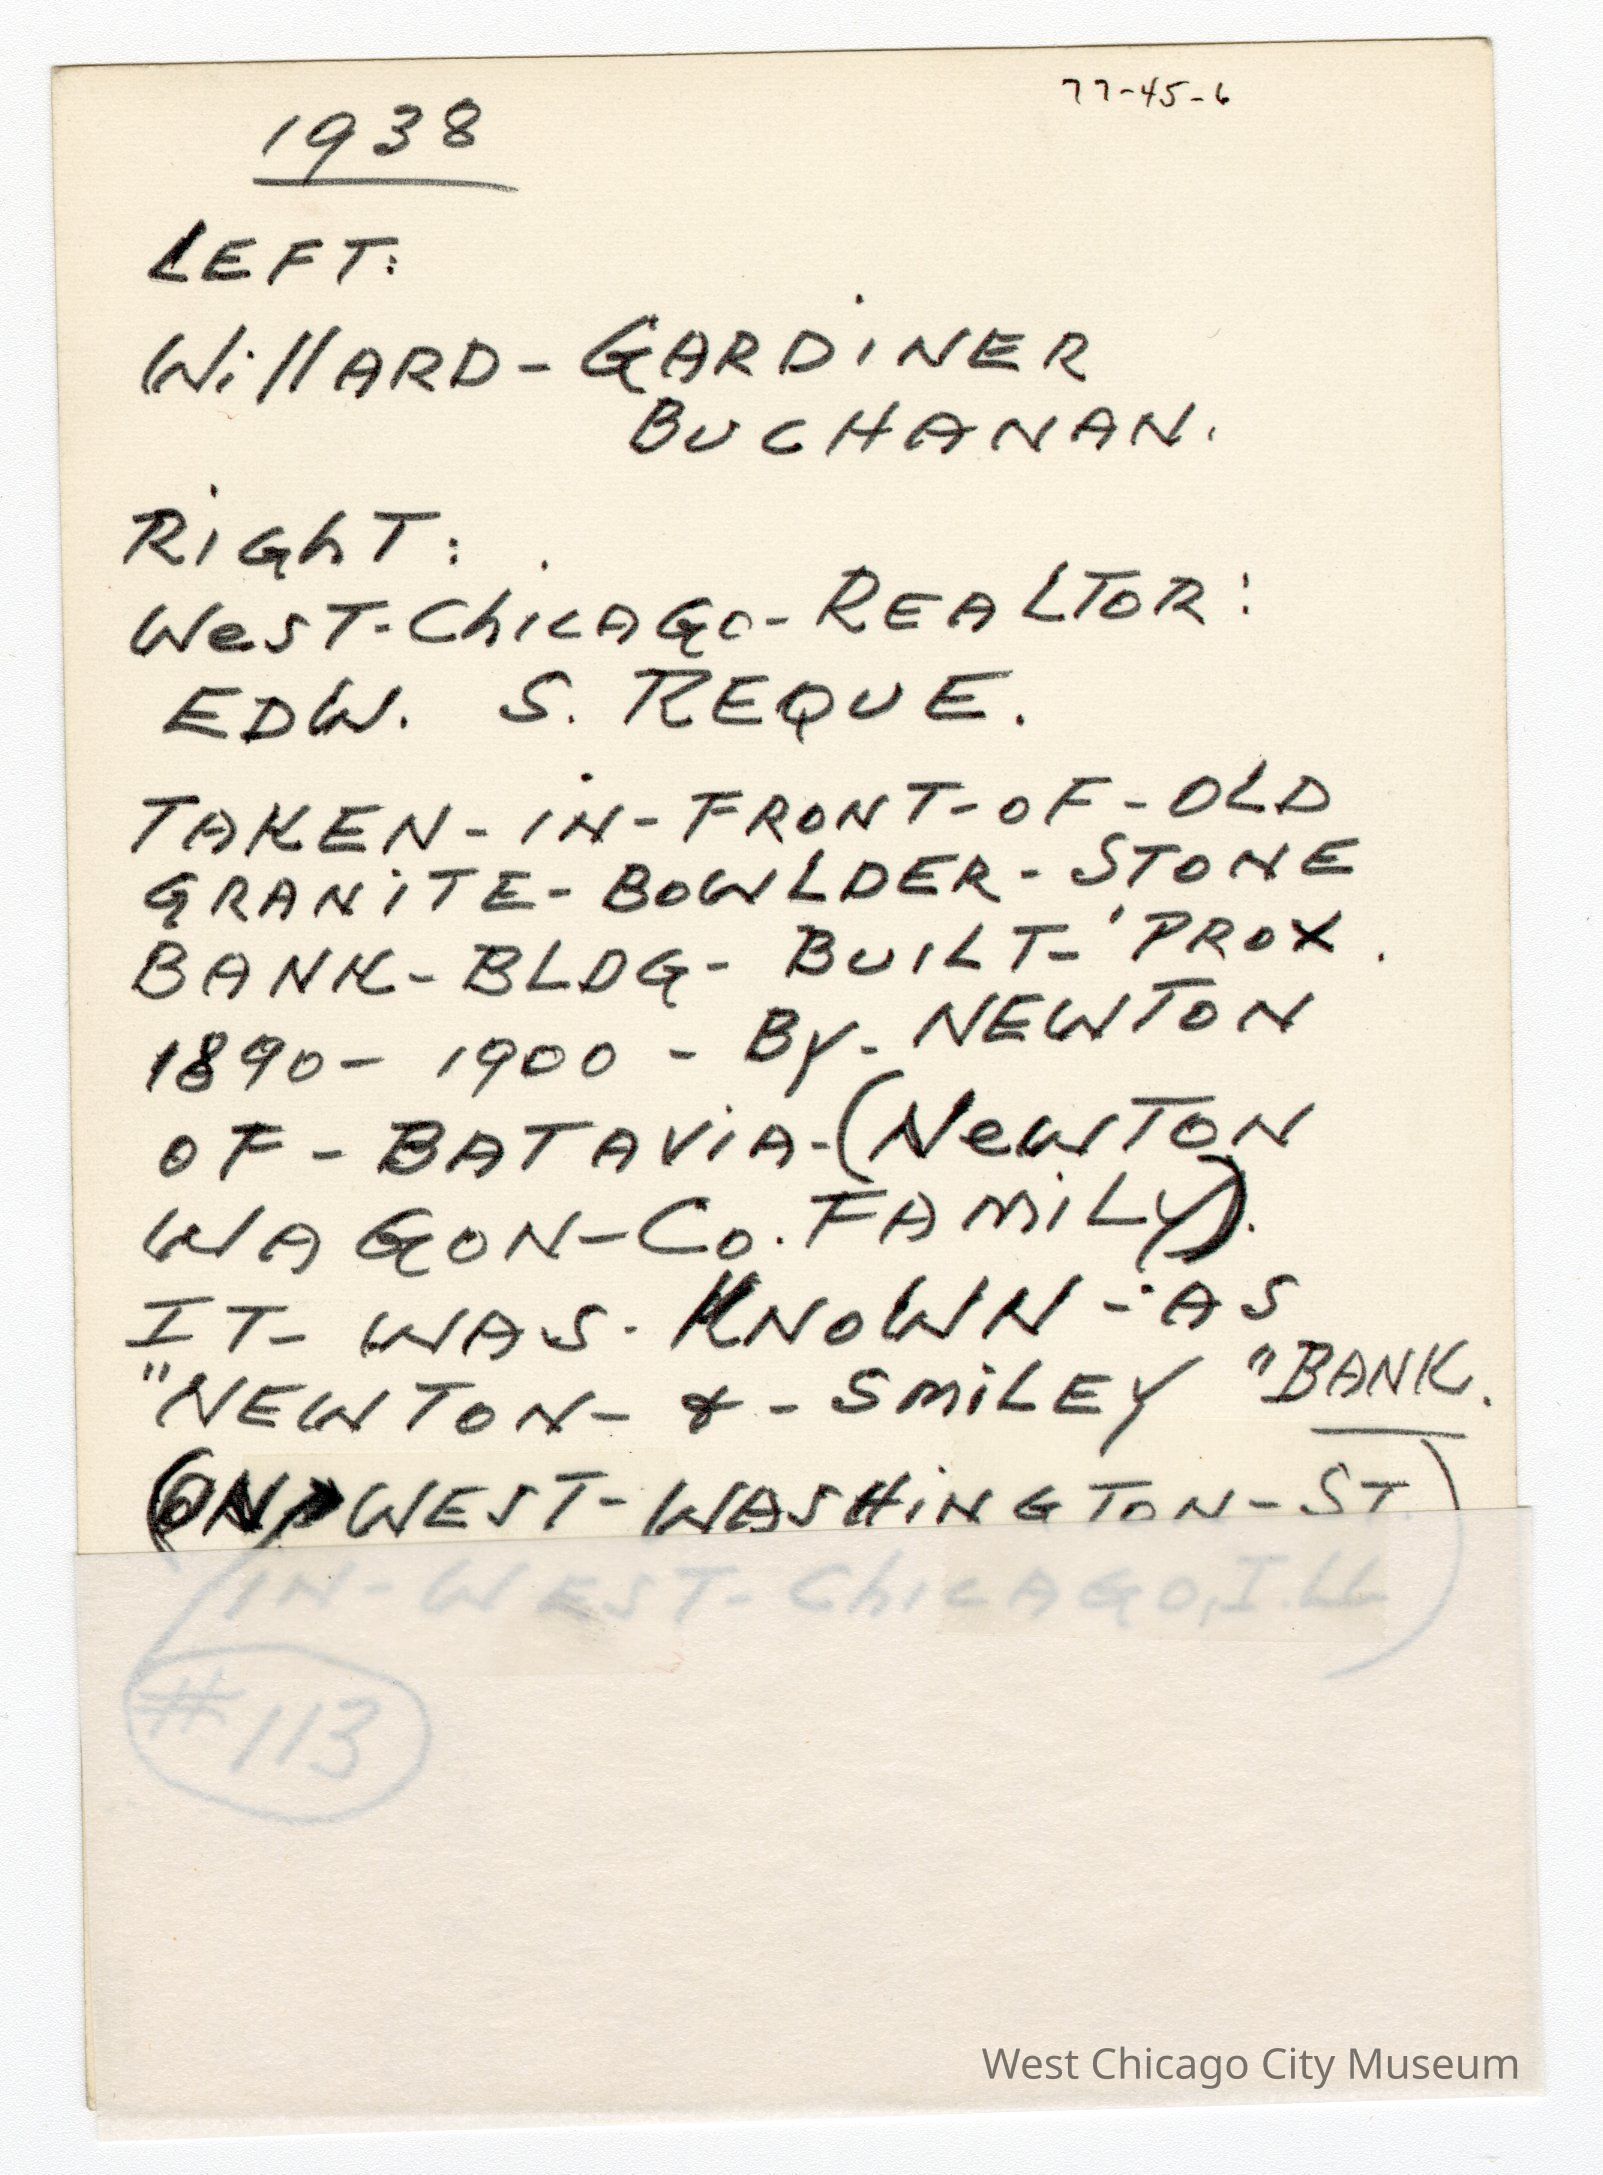 77-45-6
1938
LEFT:
WillARD-GARDiNER
BUCHANAN.
RiGhT:
WesT-ChicAGo-REALTOR:
EDW. S. REQUE.
TAKEN-iN-FRONT-OF-OLD
GRANiTE-BOWLDER-STONE
BANK-BLDG- BUILT-'PROX.
1890- 1900 - By- NEWTON
OF-BATAViA-(NeWTON
WAGON-Co. FAMiLY).
IT- WAS- KNOWN-AS
"NEWTON- & -SMiLEY "BANK.
(ON WEST-WASHiNGTON-ST.)
IN-WEST-ChicAGO, ILL
#113
West Chicago City Museum